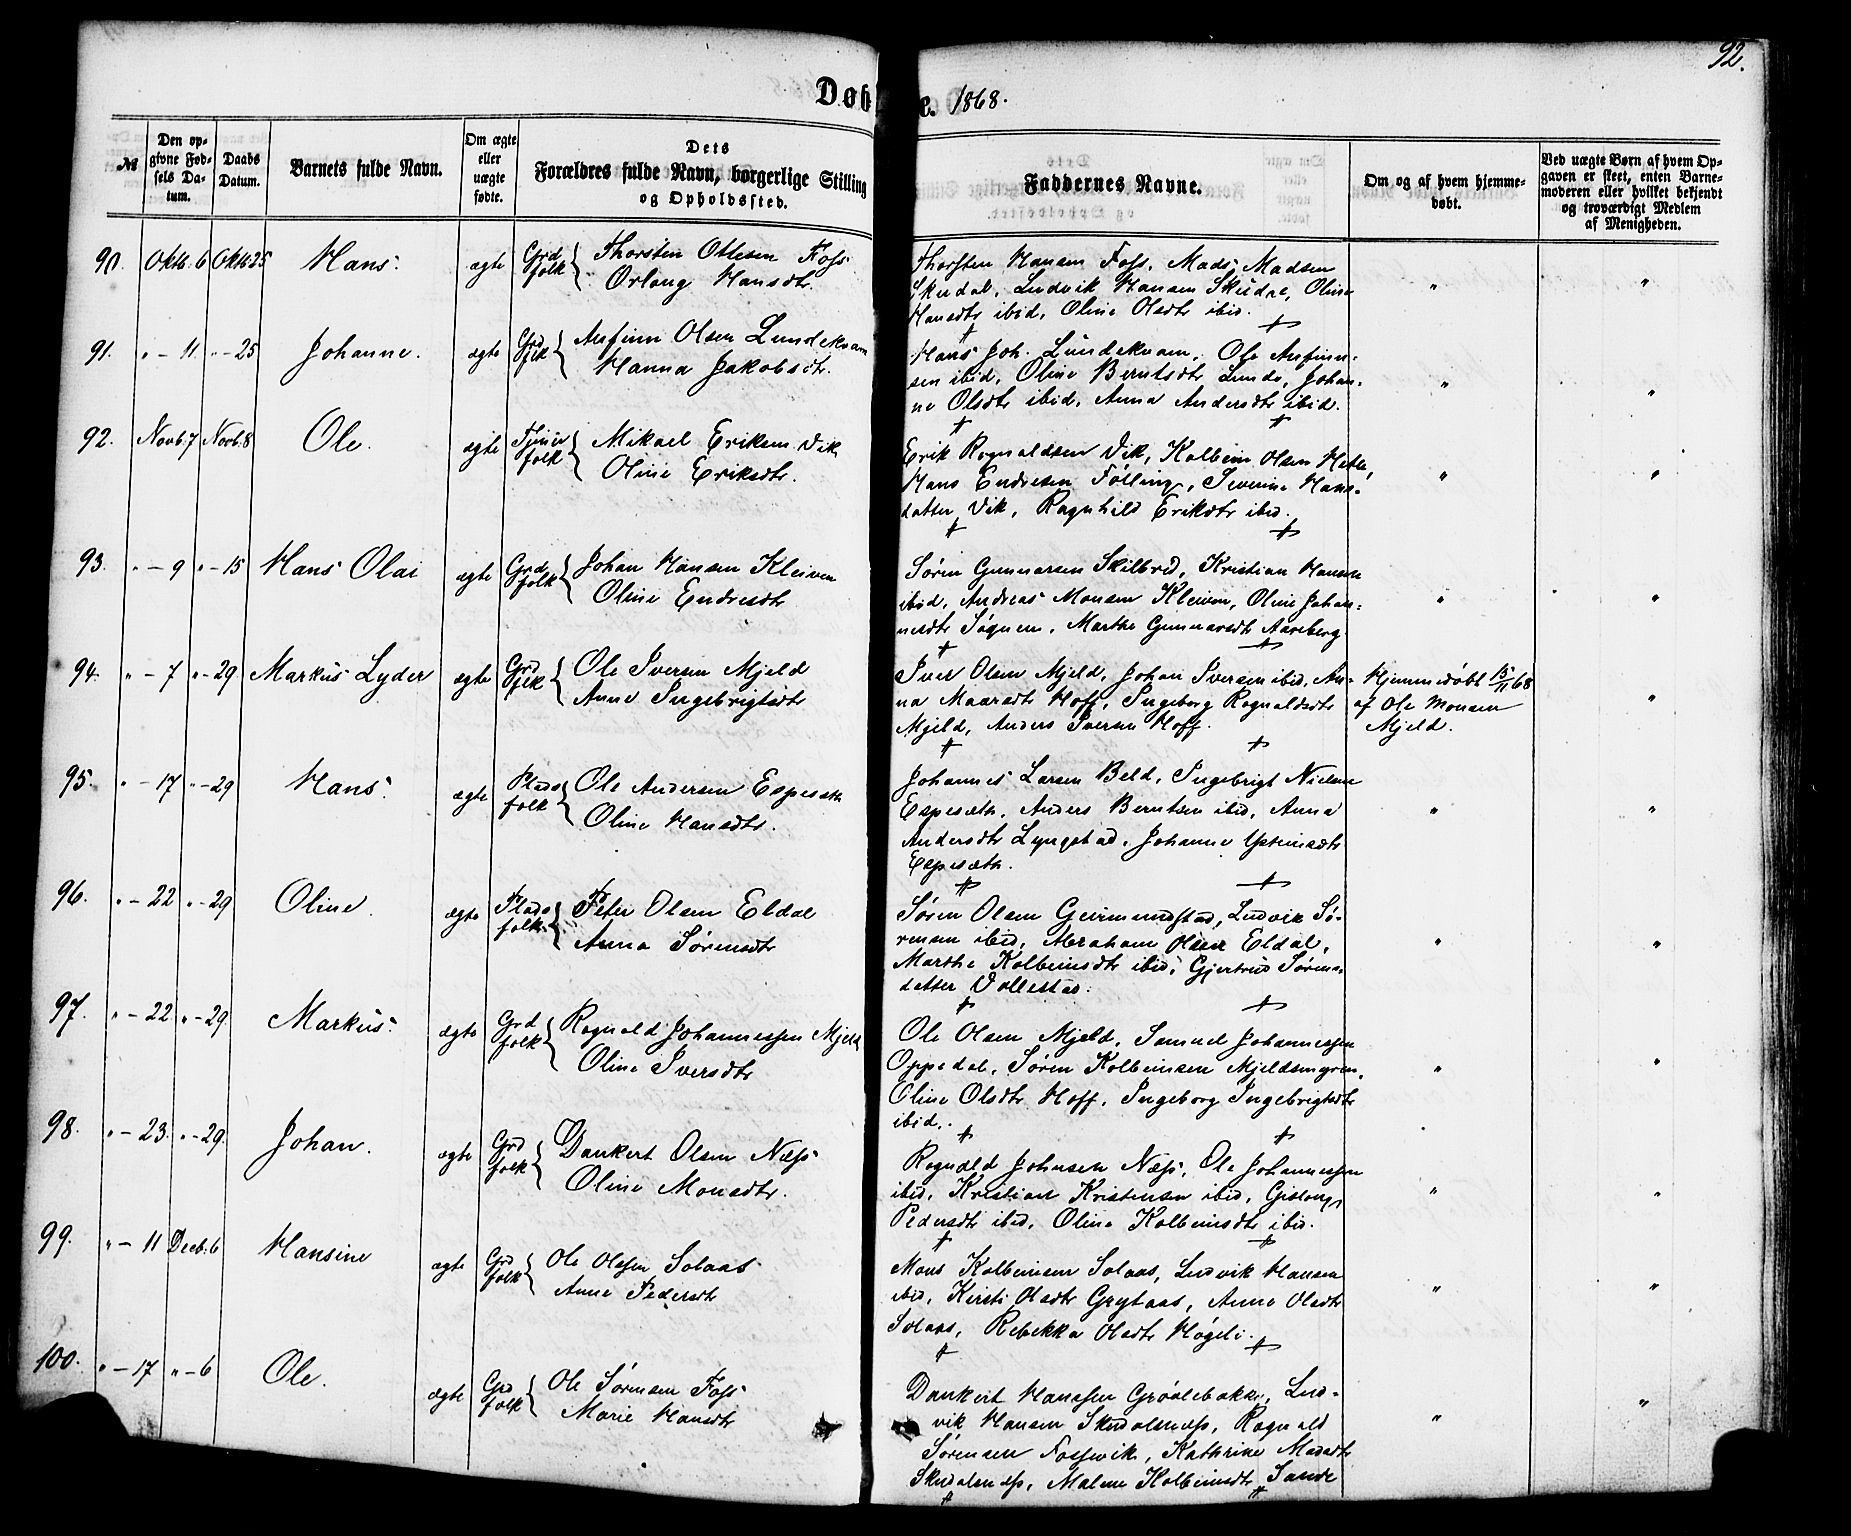 92.
Døbte. 1868.
№
Den opgivne Fødsels Datum.
Daabs Datum.
Barnets fulde Navn.
Om ægte eller uægte fødte.
Dets Forældres fulde Navn, borgerlige Stilling og Opholdssted.
Faddernes Navne.
Om og af hvem hjemmedøbt.
Ved uægte Børn af hvem Opgaven er skeet, enten Barnemoderen eller hvilket bekjendt og troværdigt Medlem af Menigheden.
90. Oktb. 6 Oktb 25 Hans. ægte Grd folk Thorsten Ottesen Foss
Orlaug Hansdtr.
Thorsten Hansen Foss, Mads Madsen
Skudal, Ludvik Hansen Skudal, Oline
Hansdtr ibid, Oline Olsdtr ibid. " "
91. " - 11. " - 25 Johanne. ægte Grd folk Anfinn Olsen Lundekvam
Hanna Jakobsdtr.
Hans Joh. Lundekvam, Ole Anfinn-
sen ibid, Oline Berntsdtr Lunde, Johan-
ne Olsdtr ibid, Anna Andersdtr ibid. " "
92. Novb. 7 Novb. 8 Ole. ægte Tjener folk Mikael Eriksen Vik
Oline Eriksdtr.
Erik Rognaldsen Vik, Kolbein Olsen Hatle,
Hans Endresen Følling, Severine Hans-
datter Vik, Ragnhild Eriksdtr ibid. " "
93. " - 9 " - 15 Hans Olai ægte Grd folk Johan Hansen Kleiven
Oline Endresdtr
Søren Gunnarsen Skilbred, Kristian Hansen
ibid, Andreas Monsen Kleiven, Oline Johan-
nesdtr Søgnen, Marthe Gunnarsdtr Aareberg. " "
94. " - 7 " - 29 Markus Lyder ægte Grd folk Ole Iversen Mjeld
Anne Ingebrigtsdtr
Iver Olsen Mjeld, Johan Iversen ibid, An-
na Maaradtr Hoff, Ingeborg Rognaldsdtr
Mjeld, Anders Iversen Hoff.
Hjemmedøbt 15/11 68
af Ole Monsen
Mjeld. "
95. " - 17 " - 29 Hans. ægte Plads folk Ole Andersen Espesæth
Oline Hansdtr.
Johannes Larsen Beld, Ingebrigt Nielsen
Espesæth, Anders Berntsen ibid, Anna
Andersdtr Lyngstad, Johanne Ysteinsdtr
Espesæth. " "
96. " - 22 " - 29 Oline. ægte Plads folk Peter Olsen Eldal
Anna Sørensdtr
Søren Olsen Geirmundstad, Ludvik Sø-
rensen ibid, Abraham Olsen Eldal,
Marthe Kolbeinsdtr ibid, Gjertrud Sørens-
datter Vollestad. " "
97. " - 22. " - 29. Markus. ægte Grd folk Rognald Johannessen Mjeld
Oline Iversdtr
Ole Olsen Mjeld, Samuel Johannessen
Oppedal, Søren Kolbeinsen Mjeldsmyren,
Oline Olsdtr Hoff, Ingeborg Ingebrigtsdtr
ibid. " "
98. " - 23. " - 29. Johan. ægte Grd folk Dankert Olsen Næss
Oline Monsdtr.
Rognald Johnsen Næss, Ole Johannessen
ibid, Kristian Kristensen ibid, Gislaug
Pedersdtr ibid, Oline Kolbeinsdtr ibid. " "
99. " - 11 Decb. 6 Hansine ægte Grd folk Ole Olssen Solaas
Anne Pedersdtr
Mons Kolbeinsen Solaas, Ludvik Hansen
ibid, Kirsti Olsdtr Grytaas, Anne Olsdtr
Solaas, Rebekka Olsdtr Høgeli. " "
100. " - 17 " - 6 Ole. ægte Grd folk Ole Sørensen Foss
Marie Hansdtr
Dankert Hanssen Grøvlebakke, Lud-
vik Hansen Skudalsnæss, Rognald
Sørensen Fossevik, Kathrine Madsdtr
Skudalsnæss, Malene Kolbeinsdtr Sande " "